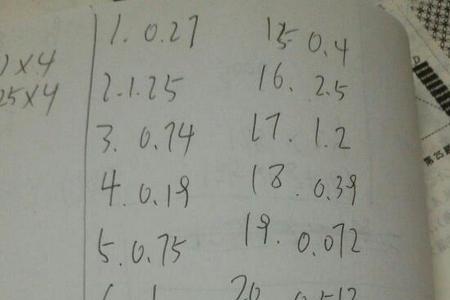 1. 0.27 15. 0.4
×4
2. 1.25 16. 2.5
25×4
3. 0.74 17. 1.2
4. 0.19 18. 0.39
5. 0.75 19. 0.072
20.